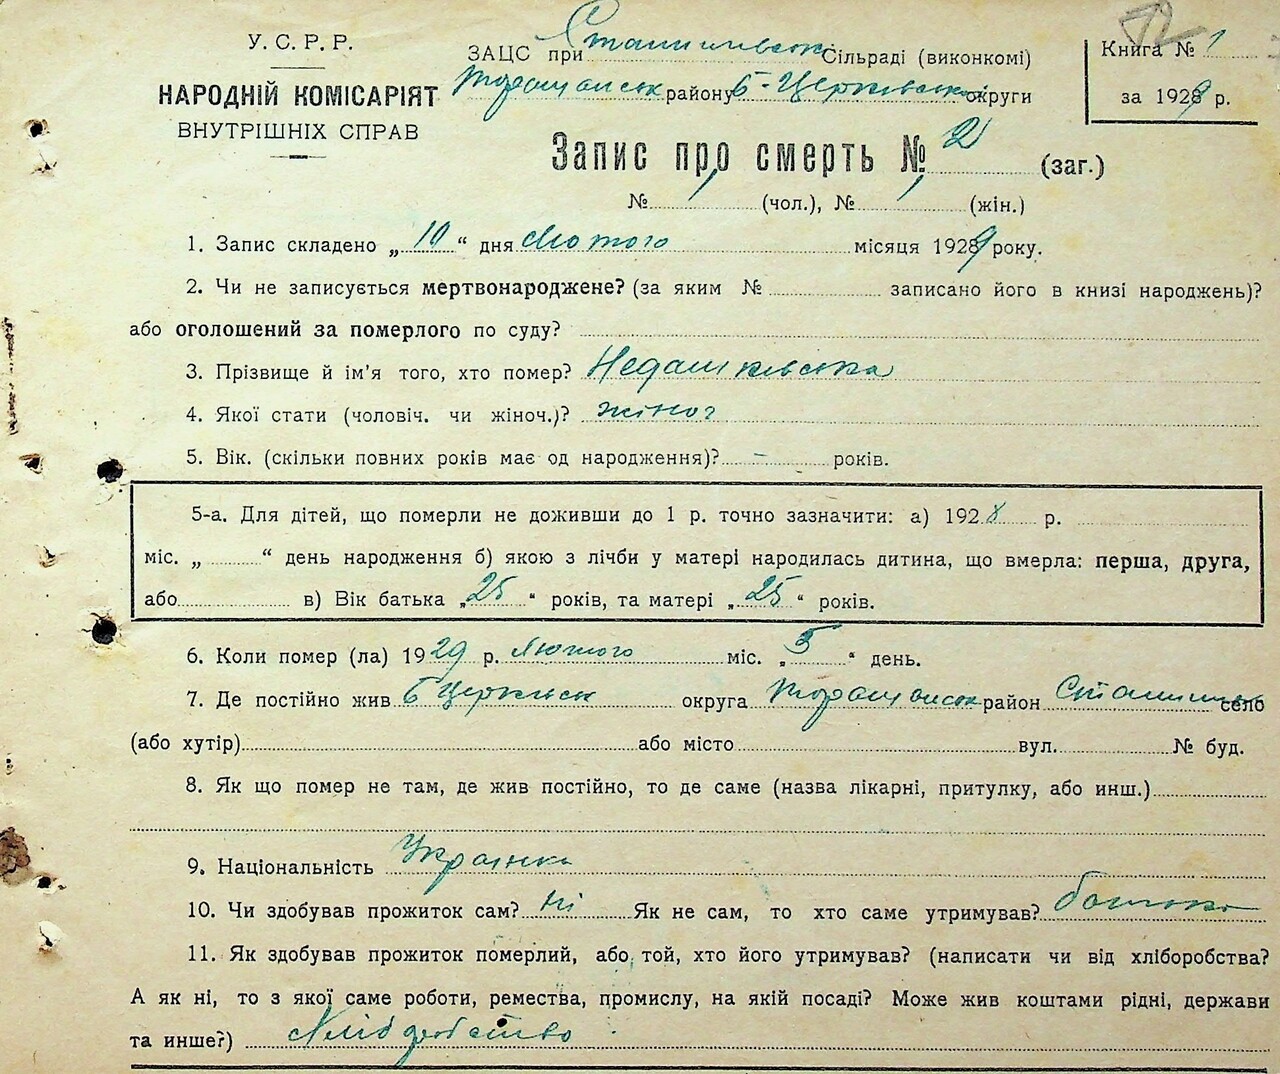 У.С.Р.Р.
НАРОДНІЙ КОМІСАРІЯТ
ВНУТРІШНІХ СПРАВ
ЗАЦС при Станишівськ Сільраді (виконкомі)
району Б-Церківської округи
Книга № 1
за 1929 р.
Запис про смерть № 2 (заг.)
№ 1 (чол.), № 1 (жін.)
1. Запис складено „10“ дня Лютого місяця 1929 року.
2. Чи не записується мертвонароджене? (за яким № записано його в книзі народжень)?
або оголошений за померлого по суду?
3. Прізвище й ім'я того, хто помер? Недашківська
4. Якої стати (чоловіч. чи жіноч.)? жіноч
5. Вік. (скільки повних років має од народження)? - років.
5-а. Для дітей, що померли не доживши до 1 р. точно зазначити: а) 1928 р.
міс. „ “ день народження б) якою з лічби у матері народилась дитина, що вмерла: перша, друга,
або в) Вік батька „25“ років, та матері „25“ років.
6. Коли помер (ла) 1929 р. Лютого міс. „5“ день.
7. Де постійно жив Б Церківськ округа район село
(або хутір) або місто вул. № буд.
8. Як що помер не там, де жив постійно, то де саме (назва лікарні, притулку, або инш.)
9. Національність Українка
10. Чи здобував прожиток сам? ні Як не сам, то хто саме утримував? батько
11. Як здобував прожиток померлий, або той, хто його утримував? (написати чи від хліборобства?
А як ні, то з якої саме роботи, ремества, промислу, на якій посаді? Може жив коштами рідні, держави
та инше?) Хлібробство